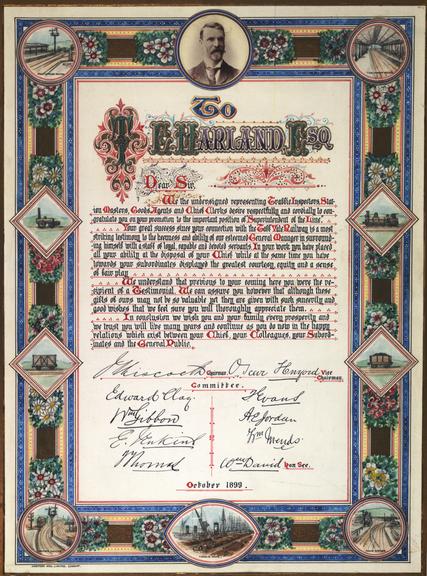 To
T. E. Harland, Esq.
Dear Sir,
We the undersigned representing Traffic Inspectors, Stat-
ion Masters, Goods Agents and Chief Clerks desire respectfully and cordially to con-
gratulate you on your promotion to the important position of Superintendent of the Line.
Your great success since your connection with the Taff Vale Railway is a most
striking testimony to the keenness and ability of our esteemed General Manager in surround-
ing himself with a staff of loyal, capable and devoted servants. In your work you have placed
all your ability at the disposal of your Chief while at the same time you have
towards your subordinates displayed the greatest courtesy, equity and a sense
of fair play.
We understand that previous to your coming here you were the re-
cipient of a Testimonial. We can assure you however that although these
gifts of ours may not be so valuable yet they are given with such sincerity and
good wishes that we feel sure you will thoroughly appreciate them.
In conclusion we wish you and your family every prosperity and
we trust you will live many years and continue as you do now in the happy
relations which exist between your Chief, your Colleagues, your Subord-
inates and the General Public.
Chairman. Vice
Chairman.
Committee.
Edward Clay
Wm Gibbon
E. Jenkins
Thomas
J Evans
A.E. Jordan
Wm David Hon Sec.
October 1899.